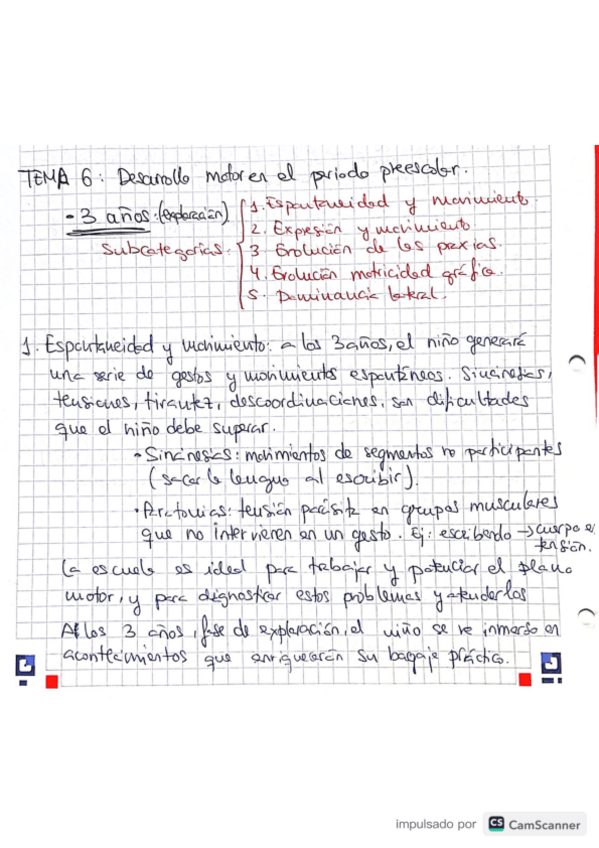 TEMA 6: Desarrollo motor en el periodo preescolar.
- 3 años: (exploración)
Subcategorías:
1. Espontaneidad y movimiento.
2. Expresión y movimiento
3 Evolución de las praxias.
4. Evolución motricidad gráfica.
5. Dominancia lateral.
1. Espontaneidad y movimiento: a los 3 años, el niño generará
una serie de gestos y movimientos espontáneos. Sincinesias,
tensiones, tirantez, descoordinaciones, son dificultades
que el niño debe superar.
• Sincinesias: movimientos de segmentos no participantes
(sacar la lengua al escribir).
• Paratonias: tensión parásita en grupos musculares
que no intervienen en un gesto. Ej: escribendo → cuerpo en
tensión.
La escuela es ideal para trabajar y potenciar el plano
motor, y para diagnosticar estos problemas y atenderlos
A los 3 años, fase de exploración, el niño se ve inmerso en
acontecimientos que enriquecerán su bagaje práctico.
impulsado por CS CamScanner